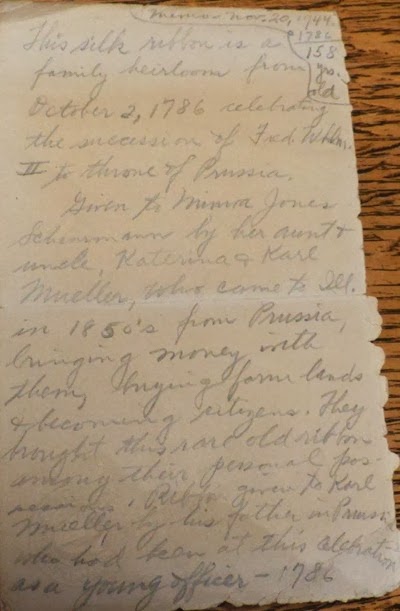 Minnoa Nov. 20, 1944.
1786
158
yrs.
old
This silk ribbon is a
family heirloom from
October 2, 1786 celebrating
the succession of Fred. Wilhm.
II to throne of Prussia.
Given to Minnoa Jones
Scheurmann by her aunt &
uncle, Katerina & Karl
Mueller, who came to Ill.
in 1850's from Prussia,
bringing money with
them, buying farm lands
& becoming citizens. They
brought this rare old ribbon
among their personal pos-
sessions. Ribbon given to Karl
Mueller by his father in Prussia
who had been at this celebration
as a young officer - 1786